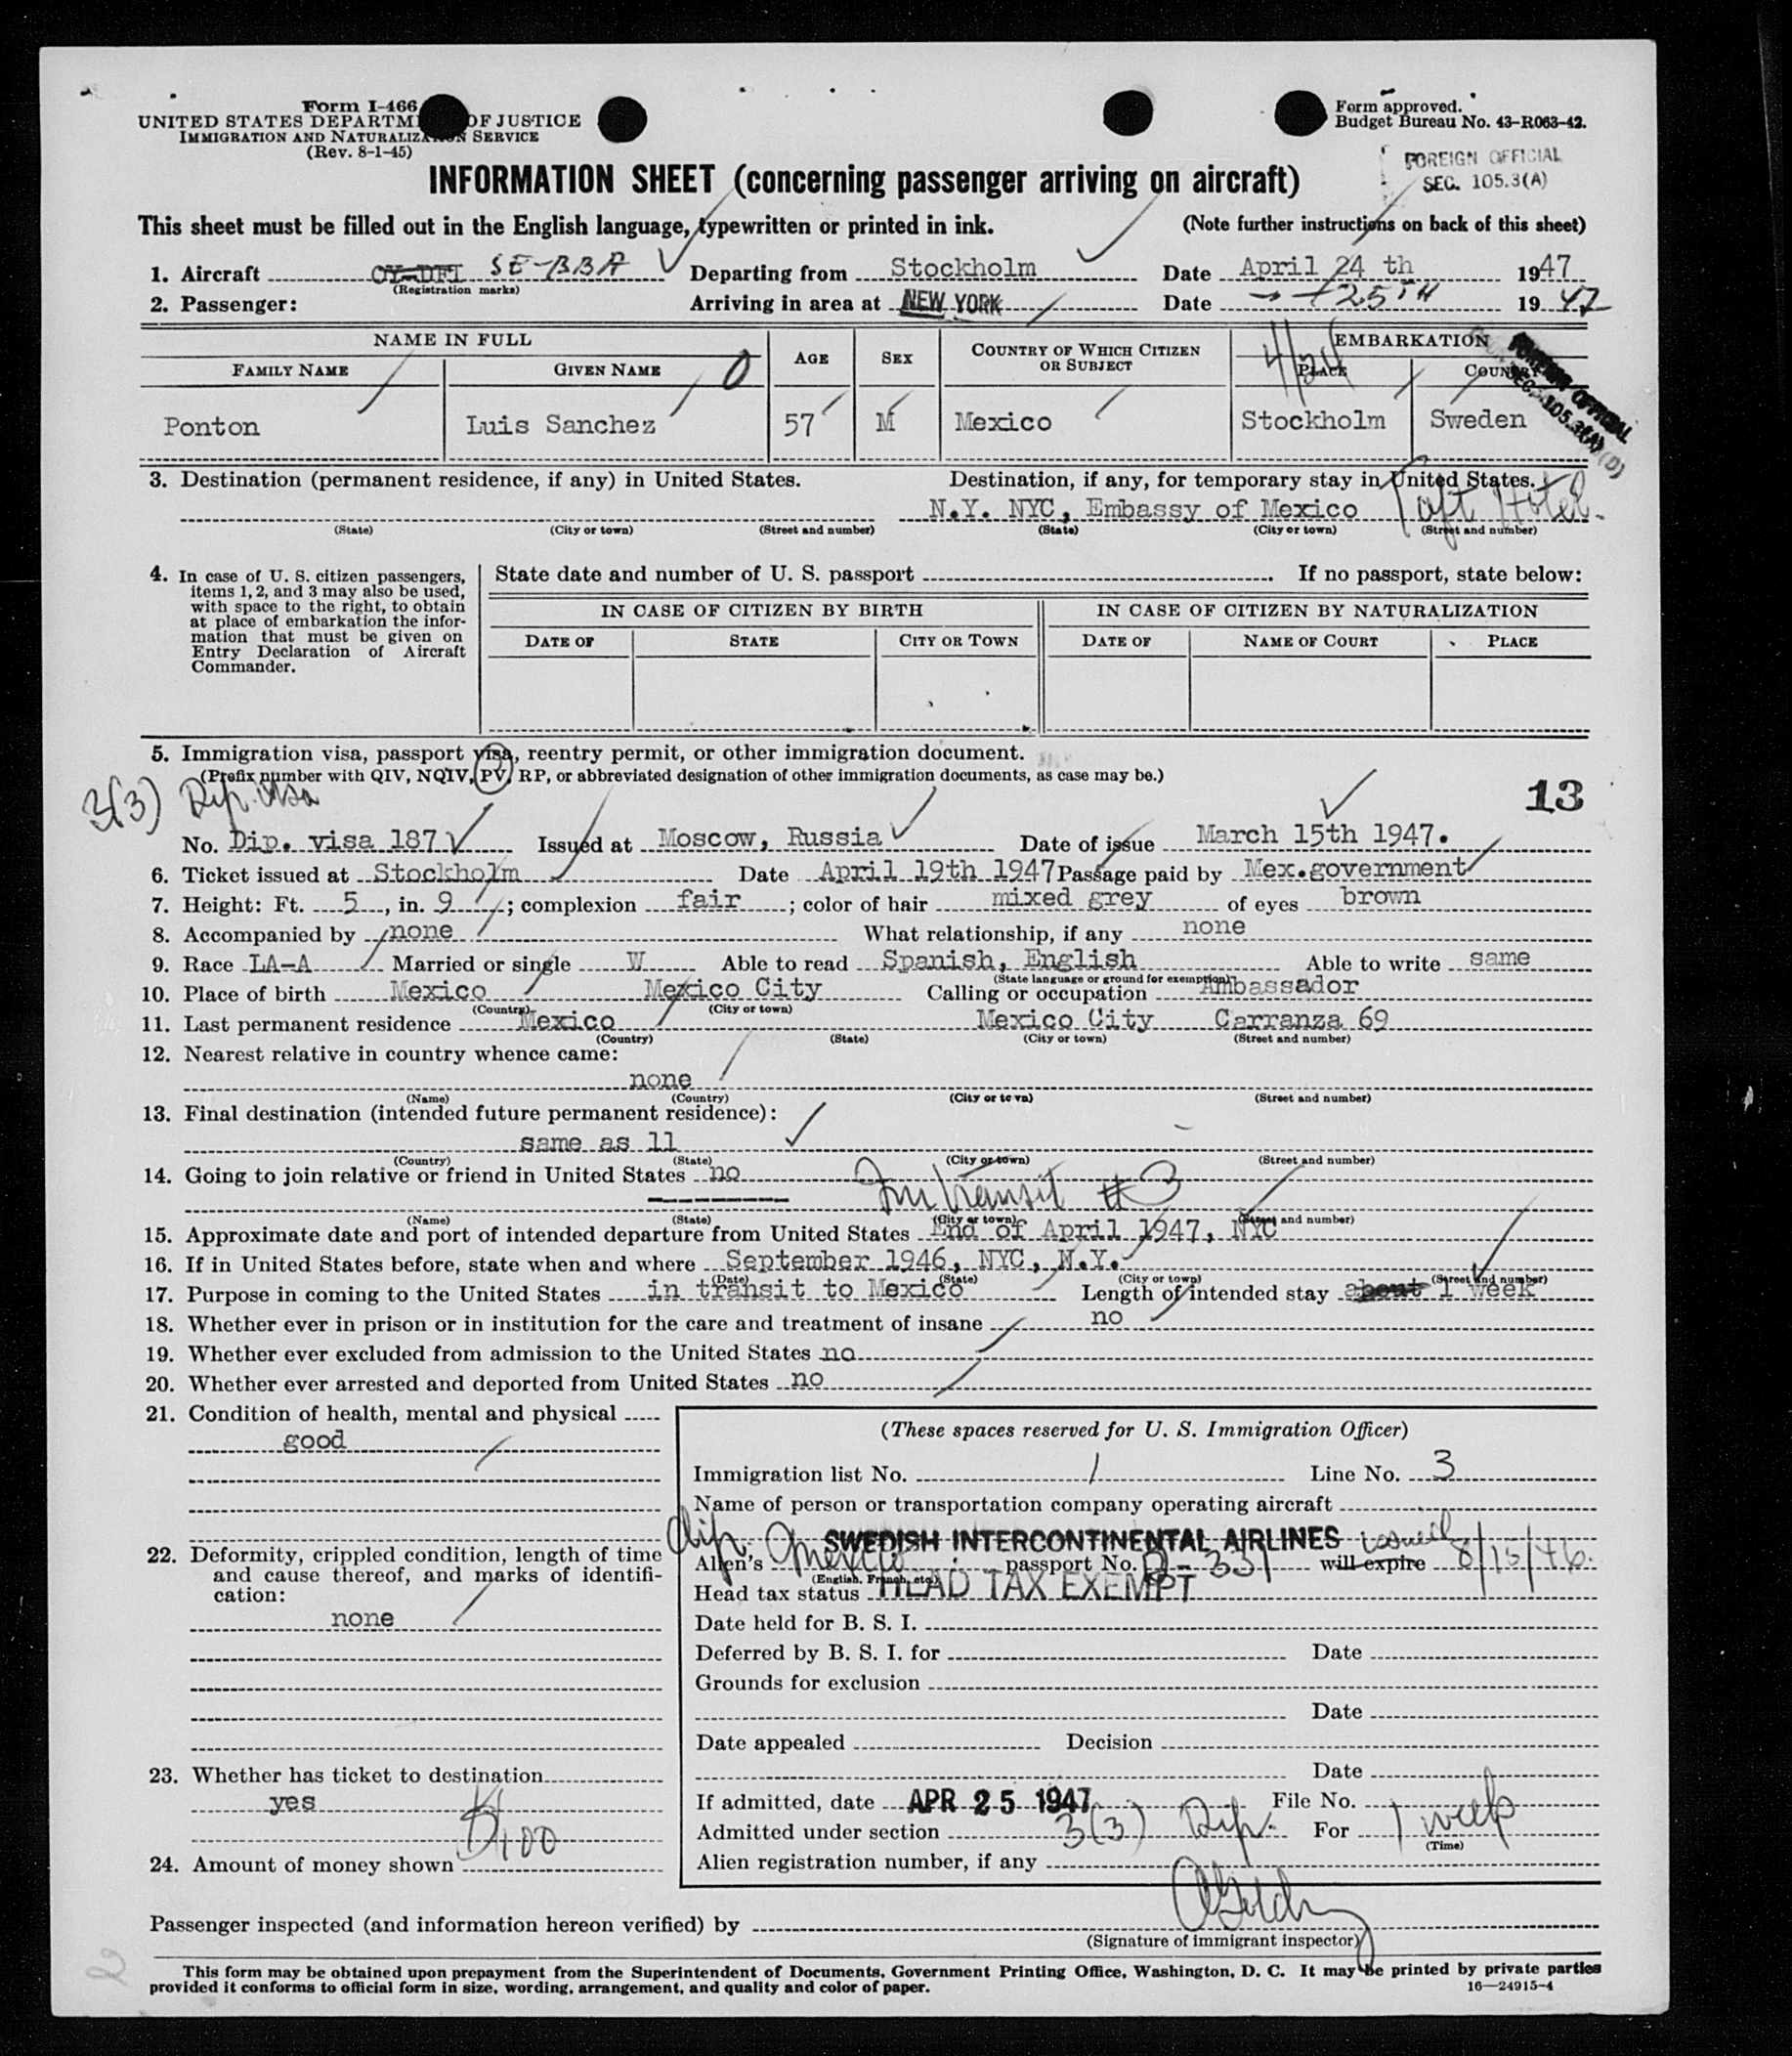 Form I-466
UNITED STATES DEPARTM OF JUSTICE
IMMIGRATION AND NATURALIZATION SERVICE
(Rev. 8-1-45)
Form approved.
Budget Bureau No. 43-R063-42.
FOREIGN OFFICIAL
SEC. 105.3(A)
INFORMATION SHEET (concerning passenger arriving on aircraft)
This sheet must be filled out in the English language, typewritten or printed in ink. (Note further instructions on back of this sheet)
1. Aircraft OY-DFI SE-BBA Departing from Stockholm Date April 24 th 1947
(Registration marks)
2. Passenger: Arriving in area at NEW YORK Date 25TH 1947
NAME IN FULL AGE SEX COUNTRY OF WHICH CITIZEN OR SUBJECT EMBARKATION
FAMILY NAME GIVEN NAME 0 PLACE COUNTRY
FOREIGN OFFICIAL
SEC. 105.3(A)
Ponton Luis Sanchez 57 M Mexico Stockholm Sweden
3. Destination (permanent residence, if any) in United States. Destination, if any, for temporary stay in United States.
N.Y. NYC, Embassy of Mexico Taft Hotel.
(State) (City or town) (Street and number) (State) (City or town) (Street and number)
4. In case of U. S. citizen passengers, items 1, 2, and 3 may also be used, with space to the right, to obtain at place of embarkation the information that must be given on Entry Declaration of Aircraft Commander.
State date and number of U. S. passport . If no passport, state below:
IN CASE OF CITIZEN BY BIRTH IN CASE OF CITIZEN BY NATURALIZATION
DATE OF STATE CITY OR TOWN DATE OF NAME OF COURT PLACE
5. Immigration visa, passport visa, reentry permit, or other immigration document.
(Prefix number with QIV, NQIV, PV, RP, or abbreviated designation of other immigration documents, as case may be.)
3(3) Dip. Visa 13
No. Dip. visa 187 Issued at Moscow, Russia Date of issue March 15th 1947.
6. Ticket issued at Stockholm Date April 19th 1947 Passage paid by Mex.government
7. Height: Ft. 5, in. 9; complexion fair; color of hair mixed grey of eyes brown
8. Accompanied by none What relationship, if any none
9. Race LA-A Married or single W Able to read Spanish, English Able to write same
(State language or ground for exemption)
10. Place of birth Mexico Mexico City Calling or occupation Ambassador
(Country) (City or town)
11. Last permanent residence Mexico Mexico City Carranza 69
(Country) (State) (City or town) (Street and number)
12. Nearest relative in country whence came:
none
(Name) (Country) (City or town) (Street and number)
13. Final destination (intended future permanent residence):
same as 11
(Country) (State) (City or town) (Street and number)
14. Going to join relative or friend in United States no
In transit #3
(Name) (State) (City or town) (Street and number)
15. Approximate date and port of intended departure from United States End of April 1947, NYC
16. If in United States before, state when and where September 1946, NYC, N.Y.
(Date) (State) (City or town) (Street and number)
17. Purpose in coming to the United States in transit to Mexico Length of intended stay about 1 week
18. Whether ever in prison or in institution for the care and treatment of insane no
19. Whether ever excluded from admission to the United States no
20. Whether ever arrested and deported from United States no
21. Condition of health, mental and physical
good
22. Deformity, crippled condition, length of time and cause thereof, and marks of identification:
none
23. Whether has ticket to destination
yes
$100
24. Amount of money shown
(These spaces reserved for U. S. Immigration Officer)
Immigration list No. 1 Line No. 3
Name of person or transportation company operating aircraft
SWEDISH INTERCONTINENTAL AIRLINES
dip. Alien's Mexico passport No. D-331 will expire issued 8/15/46.
(English, French, etc.)
Head tax status HEAD TAX EXEMPT
Date held for B. S. I.
Deferred by B. S. I. for Date
Grounds for exclusion
Date
Date appealed Decision
Date
If admitted, date APR 25 1947 File No.
Admitted under section 3(3) Dip. For 1 week
(Time)
Alien registration number, if any
Passenger inspected (and information hereon verified) by
(Signature of immigrant inspector)
2
This form may be obtained upon prepayment from the Superintendent of Documents, Government Printing Office, Washington, D. C. It may be printed by private parties
provided it conforms to official form in size, wording, arrangement, and quality and color of paper. 16—24915-4